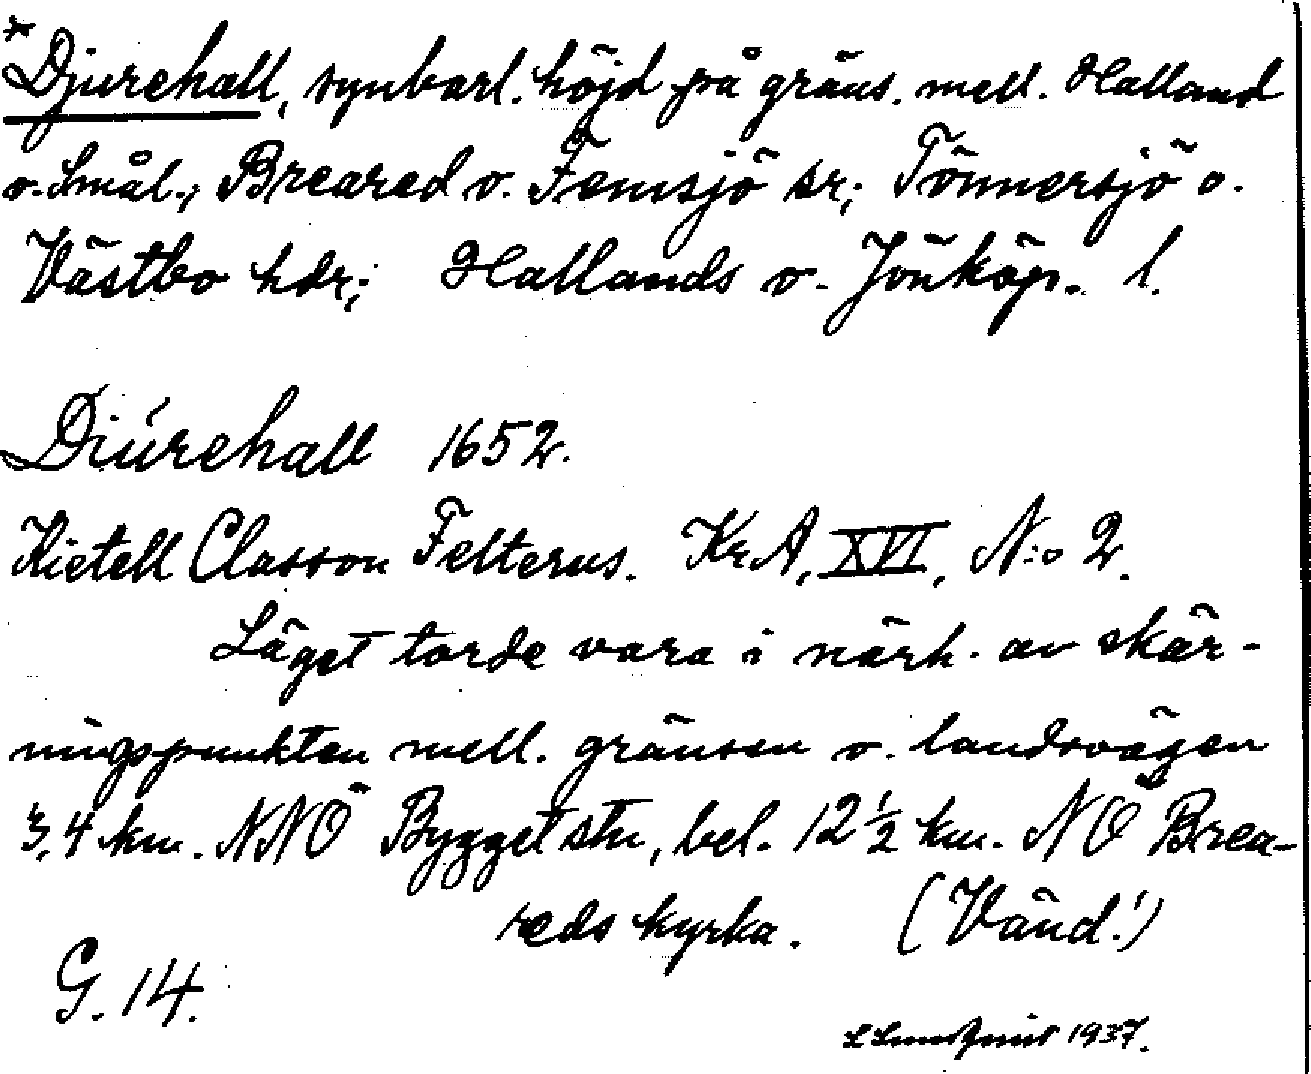 *Djurehall, synbarl. höjd på gräns. mell. Halland
o. Smål., Breared o. Femsjö sr; Tönnersjö o.
Västbo hdr; Hallands o. Jönköp. l.
Diúrehall 1652.
Kietell Classon Felterus. KrA, XVI, N:o 2.
Läget torde vara i närh. av skär-
ningspunkten mell. gränsen o. landsvägen
3,4 km. NNÖ Bygget stn, bel. 12 1/2 km. NÖ Brea-
reds kyrka. (Vänd!)
G. 14.
E Lundquist 1937.